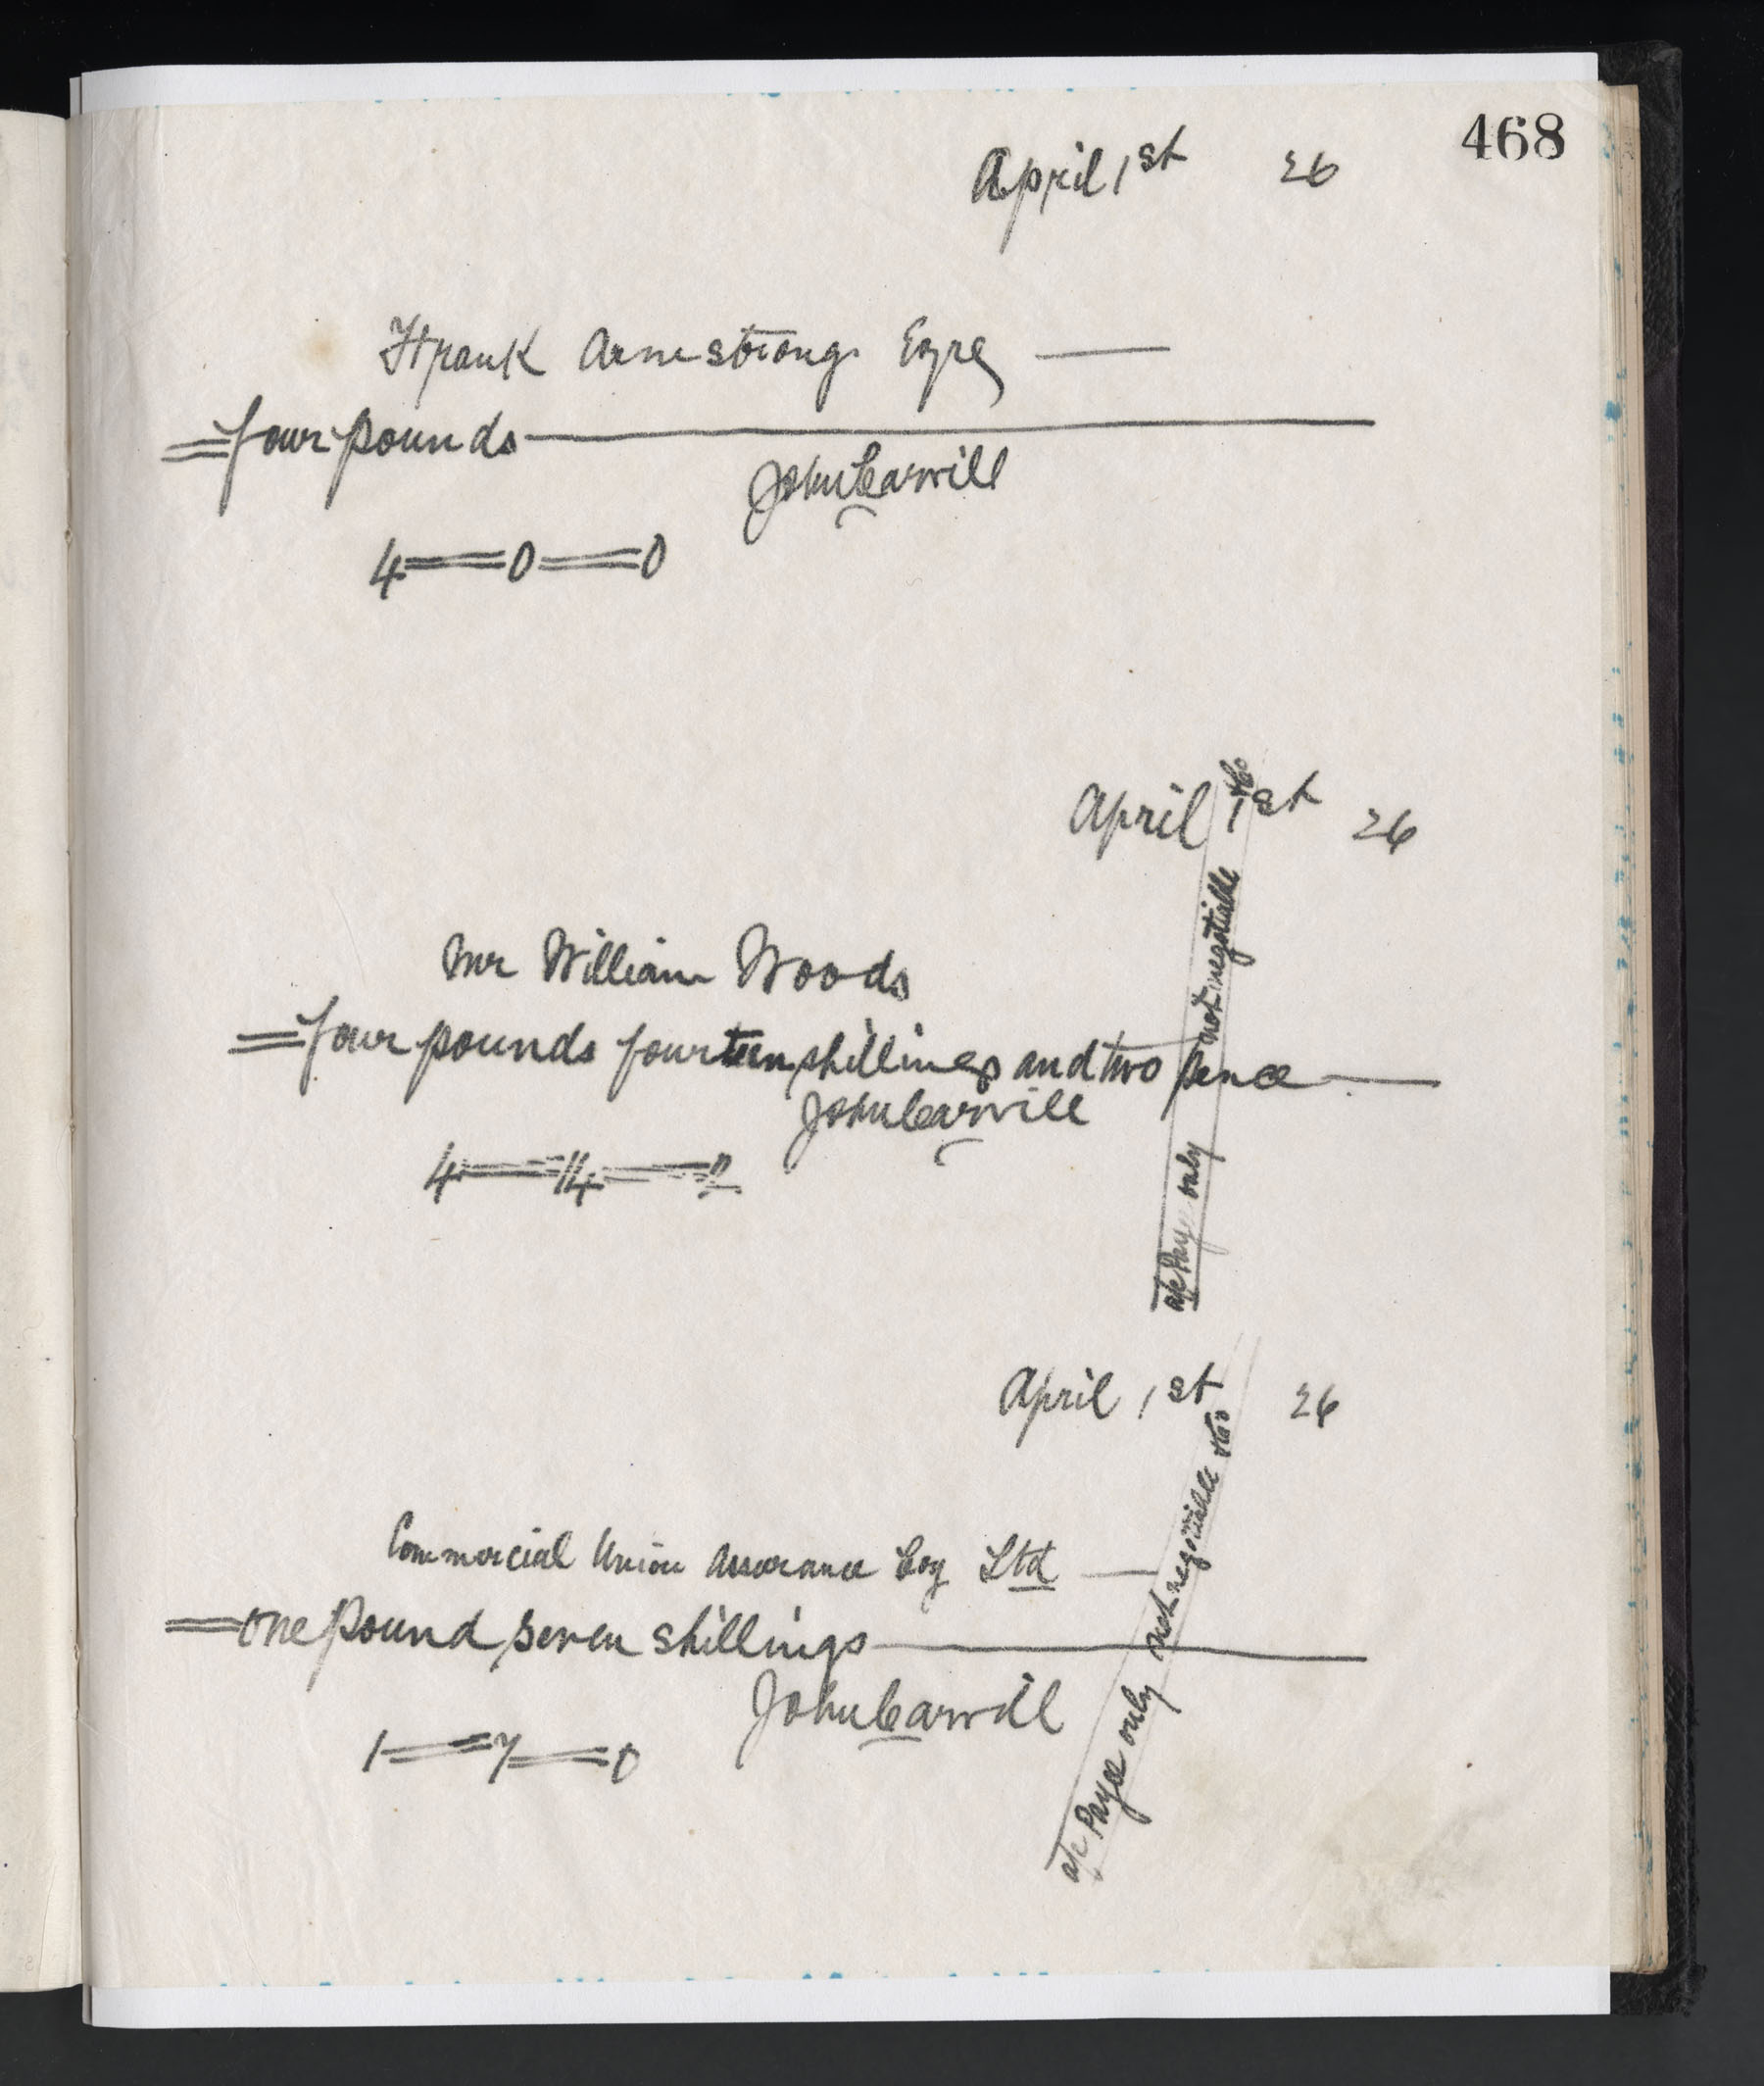 468
April 1st 26
Frank Armstrong Esqre
four pounds
John Carvill
4 = 0 = 0
April 1st 26
Mr William Woods
four pounds fourteen shillings and two pence
John Carvill
4 = 14 = 2
a/c Payee only not negotiable & Co
April 1st 26
Commercial Union Assurance Coy Ltd
one pound seven shillings
John Carvill
1 = 7 = 0
a/c Payee only not negotiable & Co